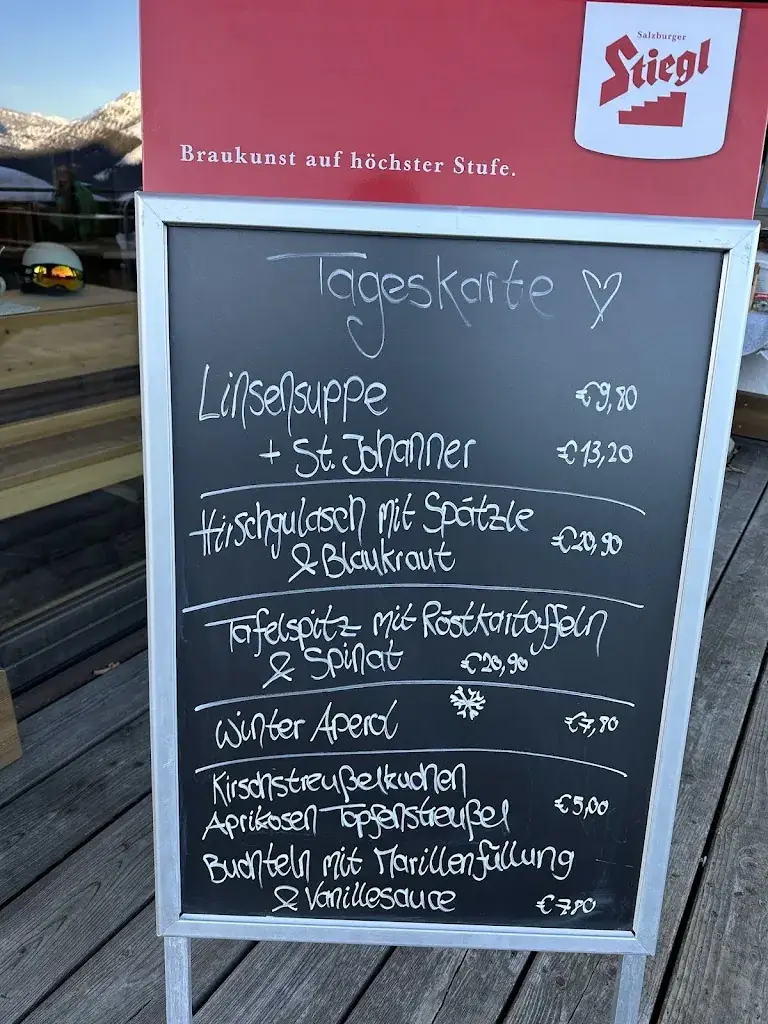 Salzburger
Stiegl
Braukunst auf höchster Stufe.
Tageskarte
Linsensuppe €9,80
+ St. Johanner €13,20
Hirschgulasch mit Spätzle €20,90
& Blaukraut
Tafelspitz mit Röstkartoffeln
& Spinat €20,90
Winter Aperol €7,80
Kirschstreußelkuchen
Aprikosen Topfenstreußel €5,00
Buchteln mit Marillenfüllung
& Vanillesauce €7,80